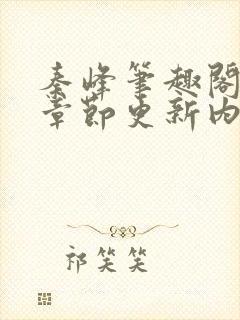 秦峰筆趣閣
章節更新内
祁笑笑